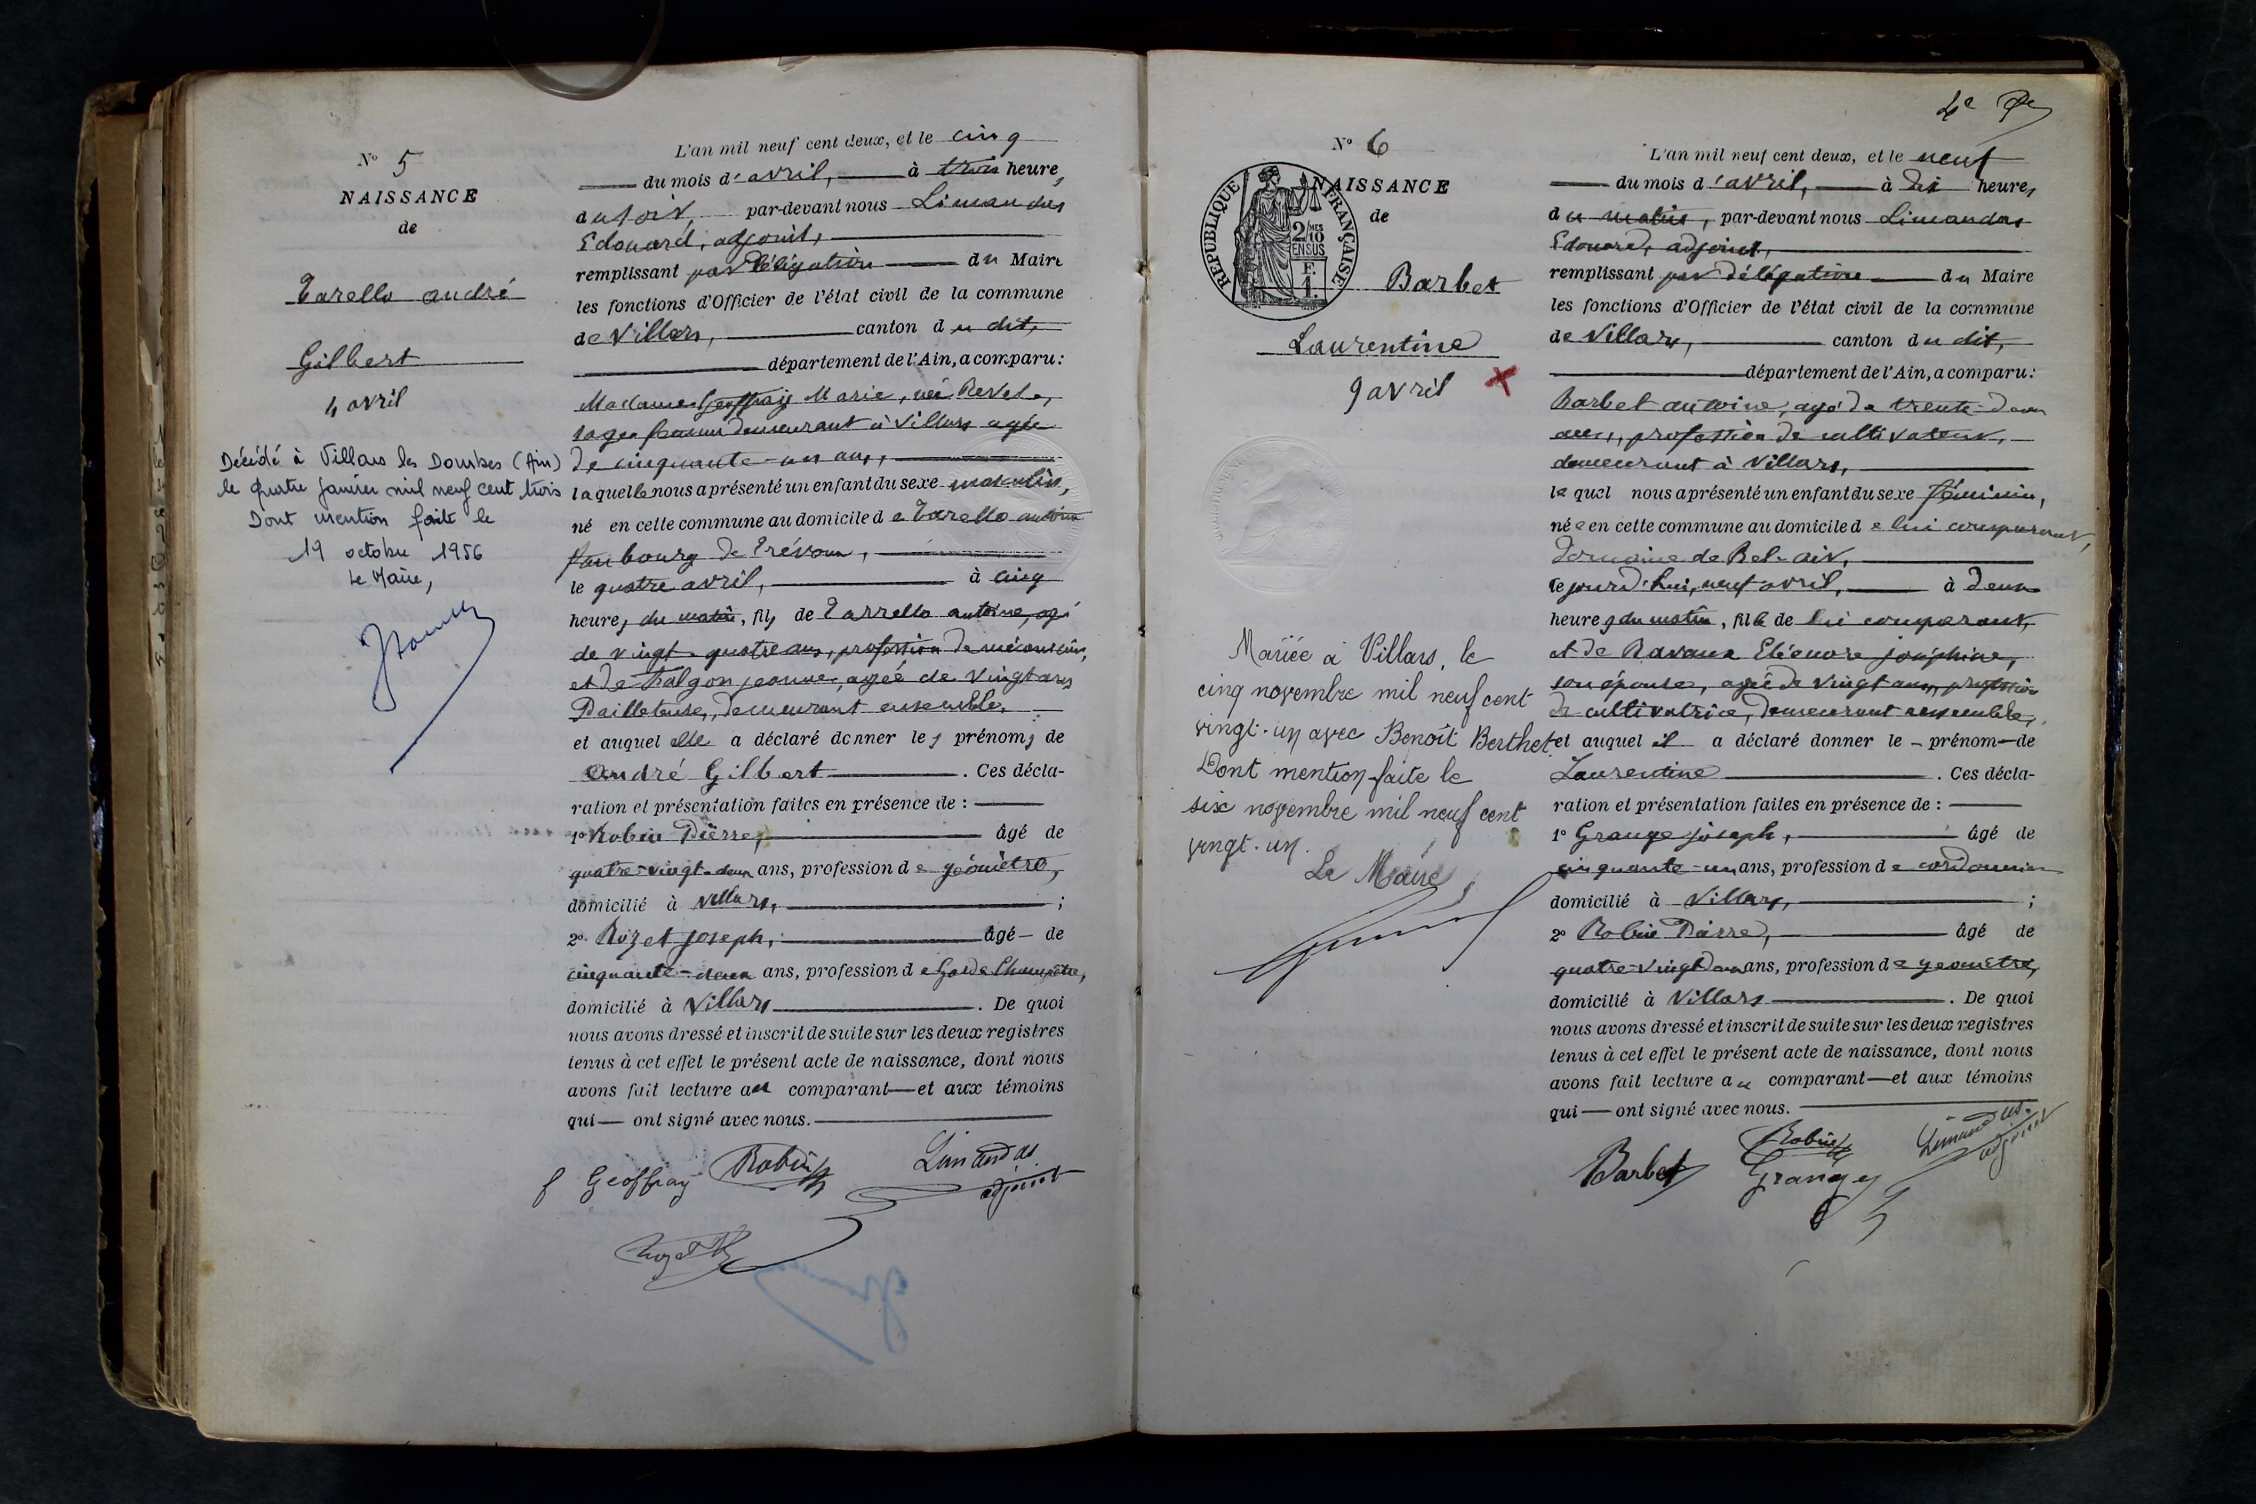 N° 5
NAISSANCE
de
Tarello andré
Gilbert
4 avril
Décédé à Villars les Dombes (Ain)
le quatre janvier mil neuf cent trois
Dont mention faite le
19 octobre 1956
Le Maire,
L'an mil neuf cent deux, et le cinq
du mois d'avril, à trois heures
du soir, par-devant nous Limandas
Edouard, adjoint,
remplissant par délégation du Maire
les fonctions d'Officier de l'état civil de la commune
de Villars, canton du dit,
département de l'Ain, a comparu :
Madame Geoffray Marie, née Revel,
sage femme demeurant à Villars agée
de cinquante-un ans,
laquelle nous a présenté un enfant du sexe masculin,
né en cette commune au domicile de Tarello antoine
faubourg de Trévoux,
le quatre avril, à cinq
heures du matin, fils de Tarrello antoine, agé
de vingt-quatre ans, profession de mécanicien,
et de jeanne, agée de vingt ans
Pailleteuse, demeurant ensemble,
et auquel elle a déclaré donner les prénoms de
André Gilbert . Ces décla-
ration et présentation faites en présence de :
1° Robin Pierre, âgé de
quatre-vingt-deux ans, profession de géomètre,
domicilié à Villars, ;
2° Rozet joseph, âgé de
cinquante-deux ans, profession de Garde Champêtre,
domicilié à Villars . De quoi
nous avons dressé et inscrit de suite sur les deux registres
tenus à cet effet le présent acte de naissance, dont nous
avons fait lecture au comparant et aux témoins
qui ont signé avec nous.
f Geoffray Robin Limandas
adjoint
Rozet
4e
N° 6
NAISSANCE
de
RÉPUBLIQUE FRANÇAISE
2/10
EN SUS
F.
1.
Barbet
Laurentine
9 avril
Mariée à Villars, le
cinq novembre mil neuf cent
vingt-un avec Benoît Berthet
Dont mention faite le
six novembre mil neuf cent
vingt-un.
Le Maire,
L'an mil neuf cent deux, et le neuf
du mois d'avril, à dix heures
du matin, par-devant nous Limandas
Edouard, adjoint,
remplissant par délégation du Maire
les fonctions d'Officier de l'état civil de la commune
de Villars, canton du dit,
département de l'Ain, a comparu :
Barbet antoine, agé de trente-deux
ans, profession de cultivateur,
demeurant à Villars,
lequel nous a présenté un enfant du sexe féminin,
née en cette commune au domicile de lui comparant,
domaine de Bel-air,
le jourd'hui, neuf avril, à deux
heures du matin, fille de lui comparant,
et de Ravaux Eléonore joséphine,
son épouse, agée de vingt ans, profession
de cultivatrice, demeurant ensemble,
et auquel il a déclaré donner le prénom de
Laurentine . Ces décla-
ration et présentation faites en présence de :
1° Grange joseph, âgé de
cinquante-un ans, profession de cordonnier
domicilié à Villars, ;
2° Robin Pierre, âgé de
quatre-vingt deux ans, profession de géomètre,
domicilié à Villars . De quoi
nous avons dressé et inscrit de suite sur les deux registres
tenus à cet effet le présent acte de naissance, dont nous
avons fait lecture au comparant et aux témoins
qui ont signé avec nous.
Barbet Robin Limandas
Grange adjoint